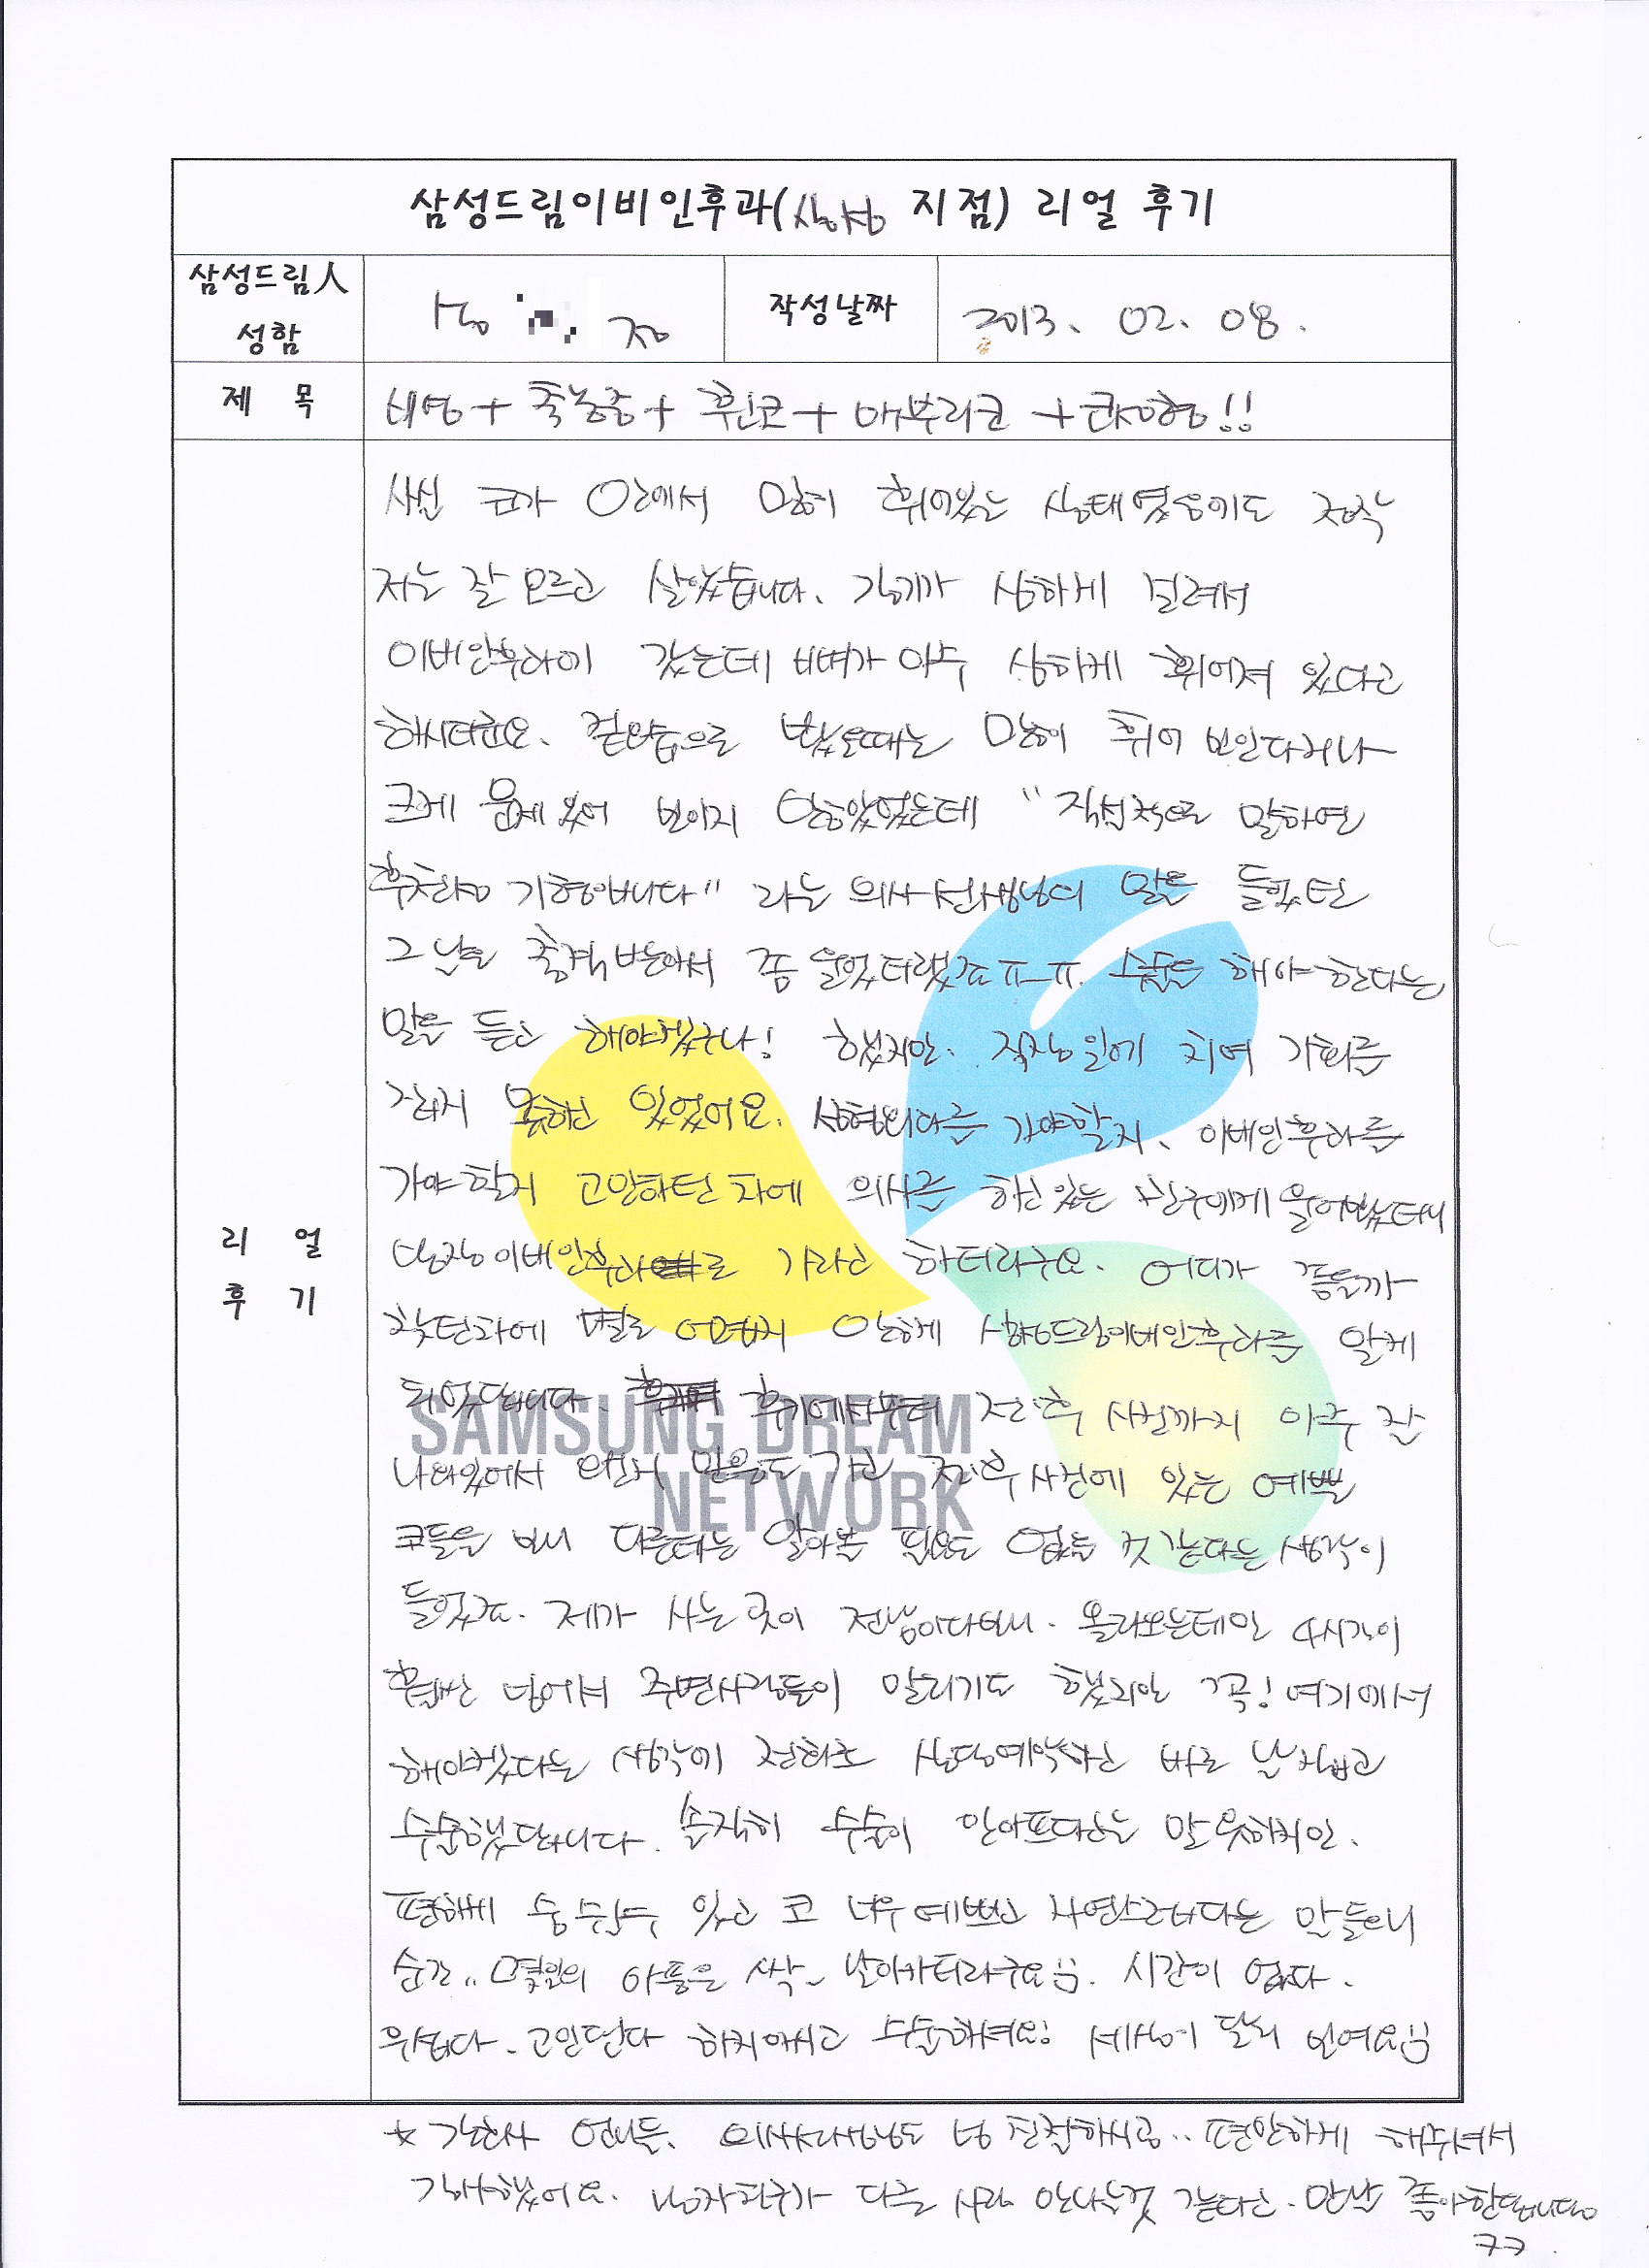 삼성드림이비인후과(삼성 지점) 리얼 후기
삼성드림人
성함
작성날짜
2013. 02. 08.
제 목
비염 + 축농증 + 휜코 + 매부리코 + 코성형!!
리 얼
후 기
사실 코가 안에서 많이 휘어있는 상태였음에도 정작
저는 잘 모르고 살았습니다. 감기가 심하게 걸려서
이비인후과에 갔는데 비벽가 아주 심하게 휘어져 있다고
하시더군요. 겉모습으로 봤을때는 많이 휘어 보인다거나
크게 문제 있어 보이지 않았었는데 "직설적으로 말하면
후천적 기형입니다" 라는 의사선생님의 말을 들었던
그 날은 충격 받아서 좀 울었더랬죠ㅠㅠ. 수술을 해야 한다는
말을 듣고 해야겠구나! 했지만. 직장일에 치여 기회를
잡지 못하고 있었어요. 성형외과를 가야할지, 이비인후과를
가야 할지 고민하던 차에 의사를 하고 있는 친구에게 물어봤더니
당장 이비인후과로 가라고 하더라구요. 어디가 좋을까
찾던차에 별로 어렵지 않게 삼성드림이비인후과를 알게
되었답니다. 후기에서부터 전·후 사진까지 아주 잘
나와있어서 믿음도 가고 전·후 사진에 있는 예쁜
코들을 보니 다른데는 알아볼 필요도 없을 것 같다는 생각이
들었죠. 제가 사는 곳이 전남이다보니. 올라오는데만 4시간이
훨씬 넘어서 주변사람들이 말리기도 했지만 꼭! 여기에서
해야겠다는 생각에 전화로 상담예약하고 바로 날 잡고
수술했답니다. 솔직히 수술이 안아프다고는 말 못하지만.
편하게 숨 쉴수 있고 코 너무 예쁘고 자연스럽다는 말 들으니
순간.. 몇일의 아픔은 싹~ 날아가더라구요^^. 시간이 없다.
무섭다. 고민된다 하지마시고 수술하셔요! 세상이 달라 보여요^^
★ 간호사 언니들, 의사선생님도 넘 친절하시공.. 편안하게 해주셔서
감사했어요. 남자친구가 다른 사람 만나는것 같다고. 만날 좋아한답니당
ㅋㅋ.